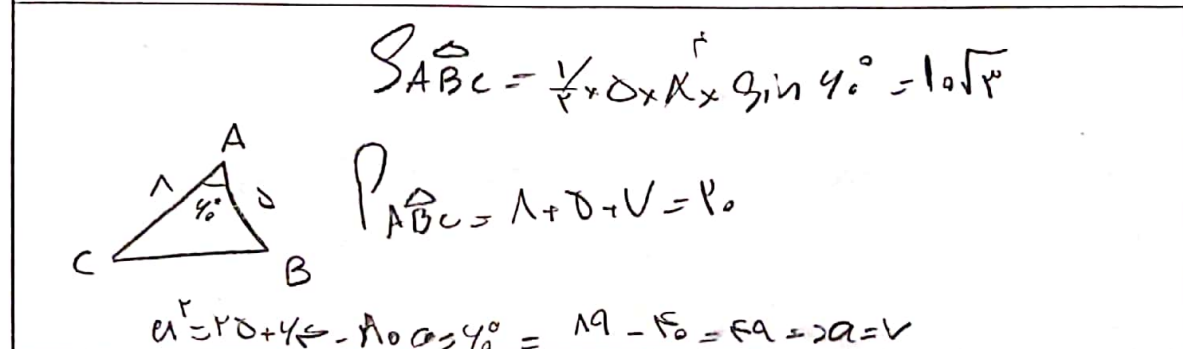 S ABC = ۱/۲ × ۵ × ۸ ۴ × Sin ۶۰° = ۱۰√۳
A
۸ ۶۰° ۵
P ABC = ۸ + ۵ + ۷ = ۲۰
C B
a² = ۲۵ + ۶۴ - ۸۰ cos ۶۰° = ۸۹ - ۴۰ = ۴۹ => a = ۷